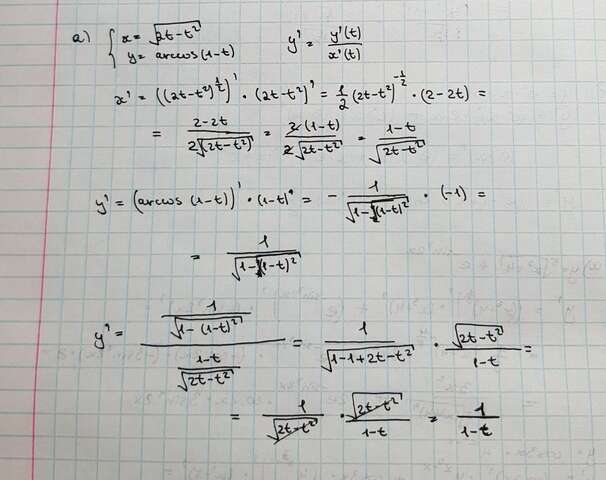 a) { x = √(2t-t²)    y' = y'(t)/x'(t)
y = arccos(1-t)
x' = ((2t-t²)^(1/2))' · (2t-t²)' = 1/2 (2t-t²)^(-1/2) · (2-2t) =
= (2-2t)/(2√(2t-t²)) = 2(1-t)/(2√(2t-t²)) = (1-t)/√(2t-t²)
y' = (arccos(1-t))' · (1-t)' = - 1/√(1-(1-t)²) · (-1) =
= 1/√(1-(1-t)²)
y' = (1/√(1-(1-t)²))/((1-t)/√(2t-t²)) = 1/√(1-1+2t-t²) · √(2t-t²)/(1-t) =
= 1/√(2t-t²) · √(2t-t²)/(1-t) = 1/(1-t)